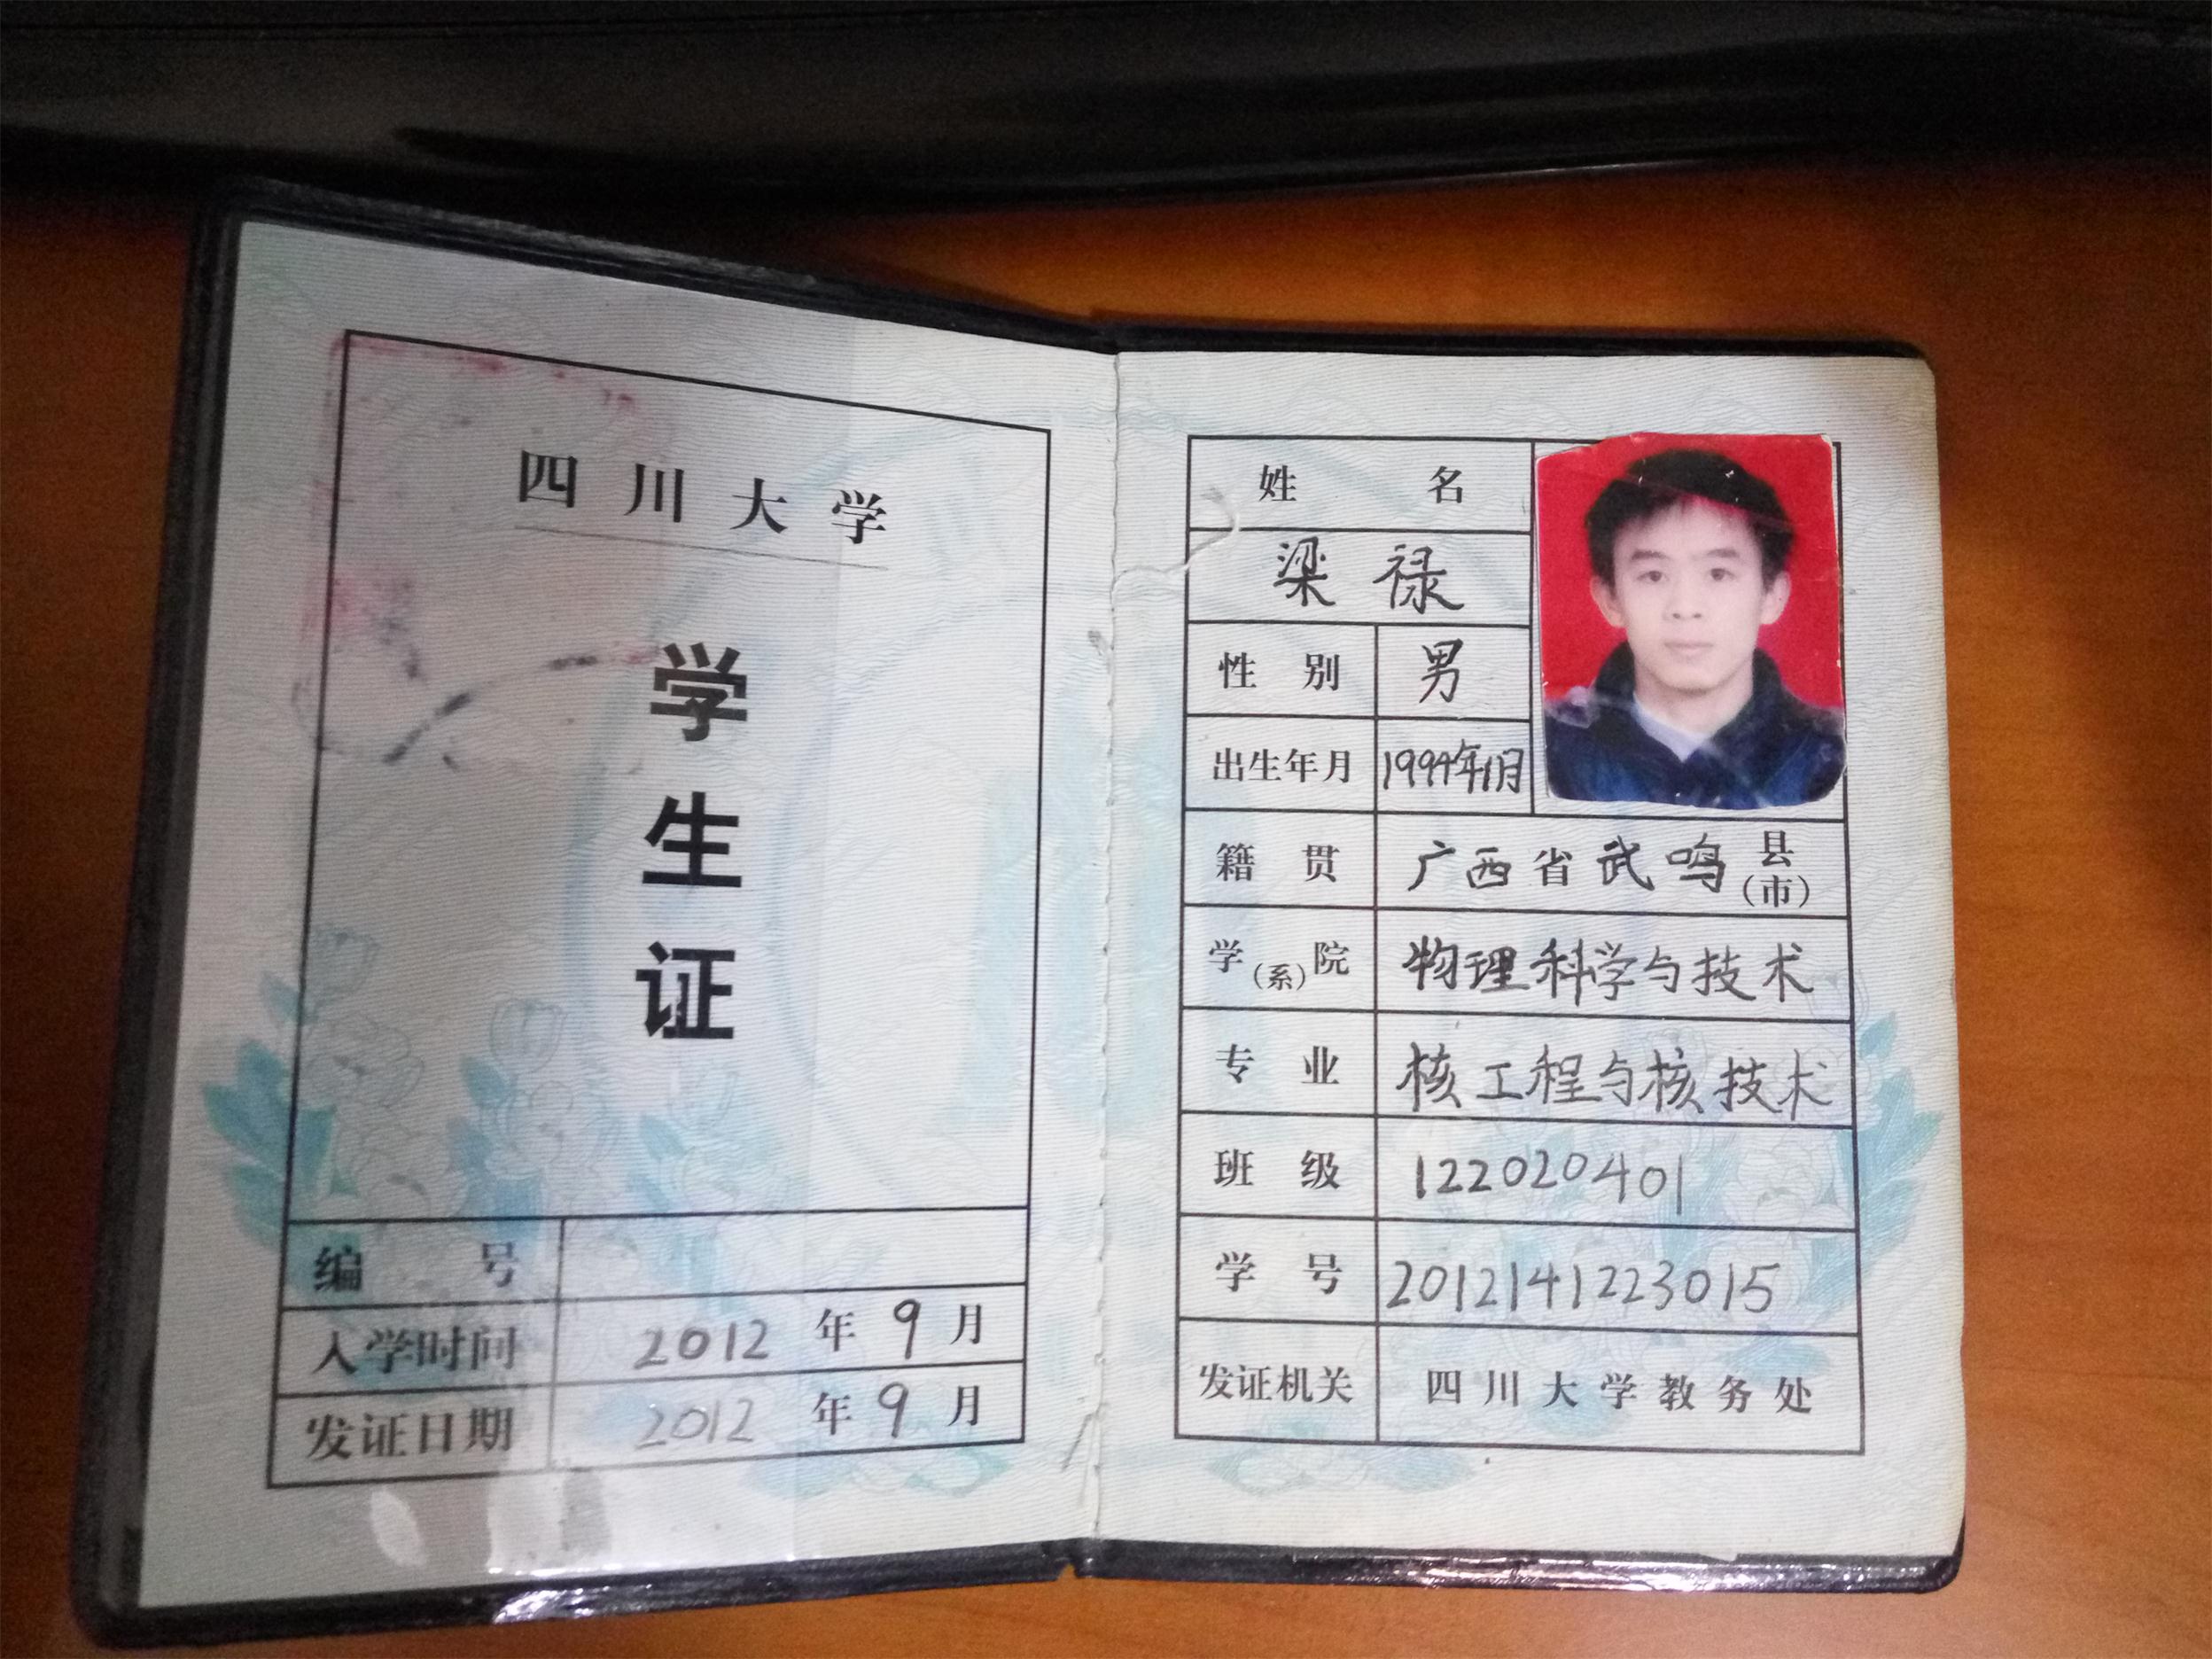 四川大学
学
生
证
编号
入学时间 2012 年 9 月
发证日期 2012 年 9 月
姓名
梁禄
性别 男
出生年月 1994年1月
籍贯 广西省武鸣县(市)
学(系)院 物理科学与技术
专业 核工程与核技术
班级 122020401
学号 2012141223015
发证机关 四川大学教务处